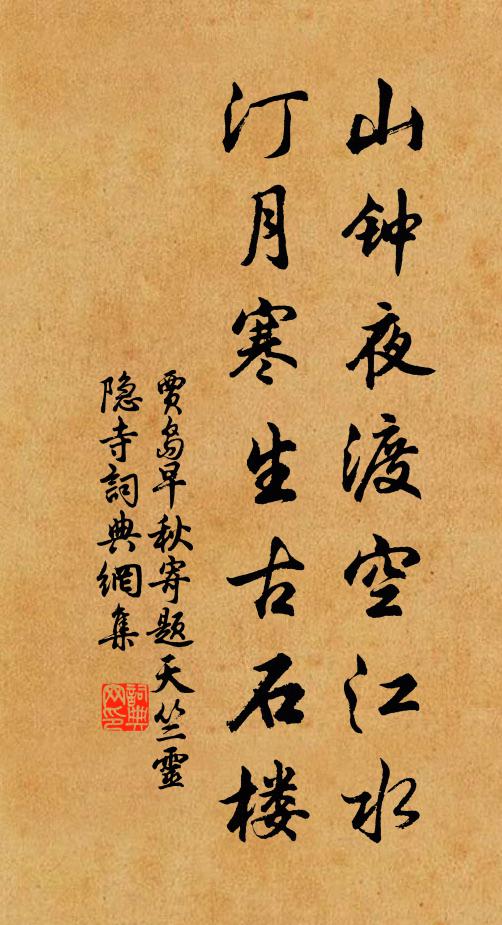 山钟夜渡空江水
汀月寒生古石楼
贾岛早秋寄题天竺靈
隐寺詞典網集
詞典
网印